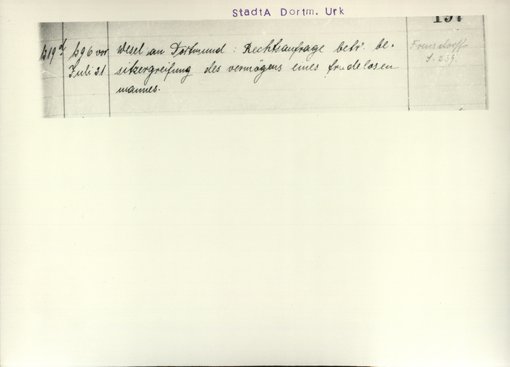 StadtA Dortm. Urk
197
419d 496 vor Wesel an Dortmund: Rechtsanfrage betr. be-
Juli 21 sitzergreifung des vermögens eines friedelosen
mannes.
Frensdorff
S. 259.